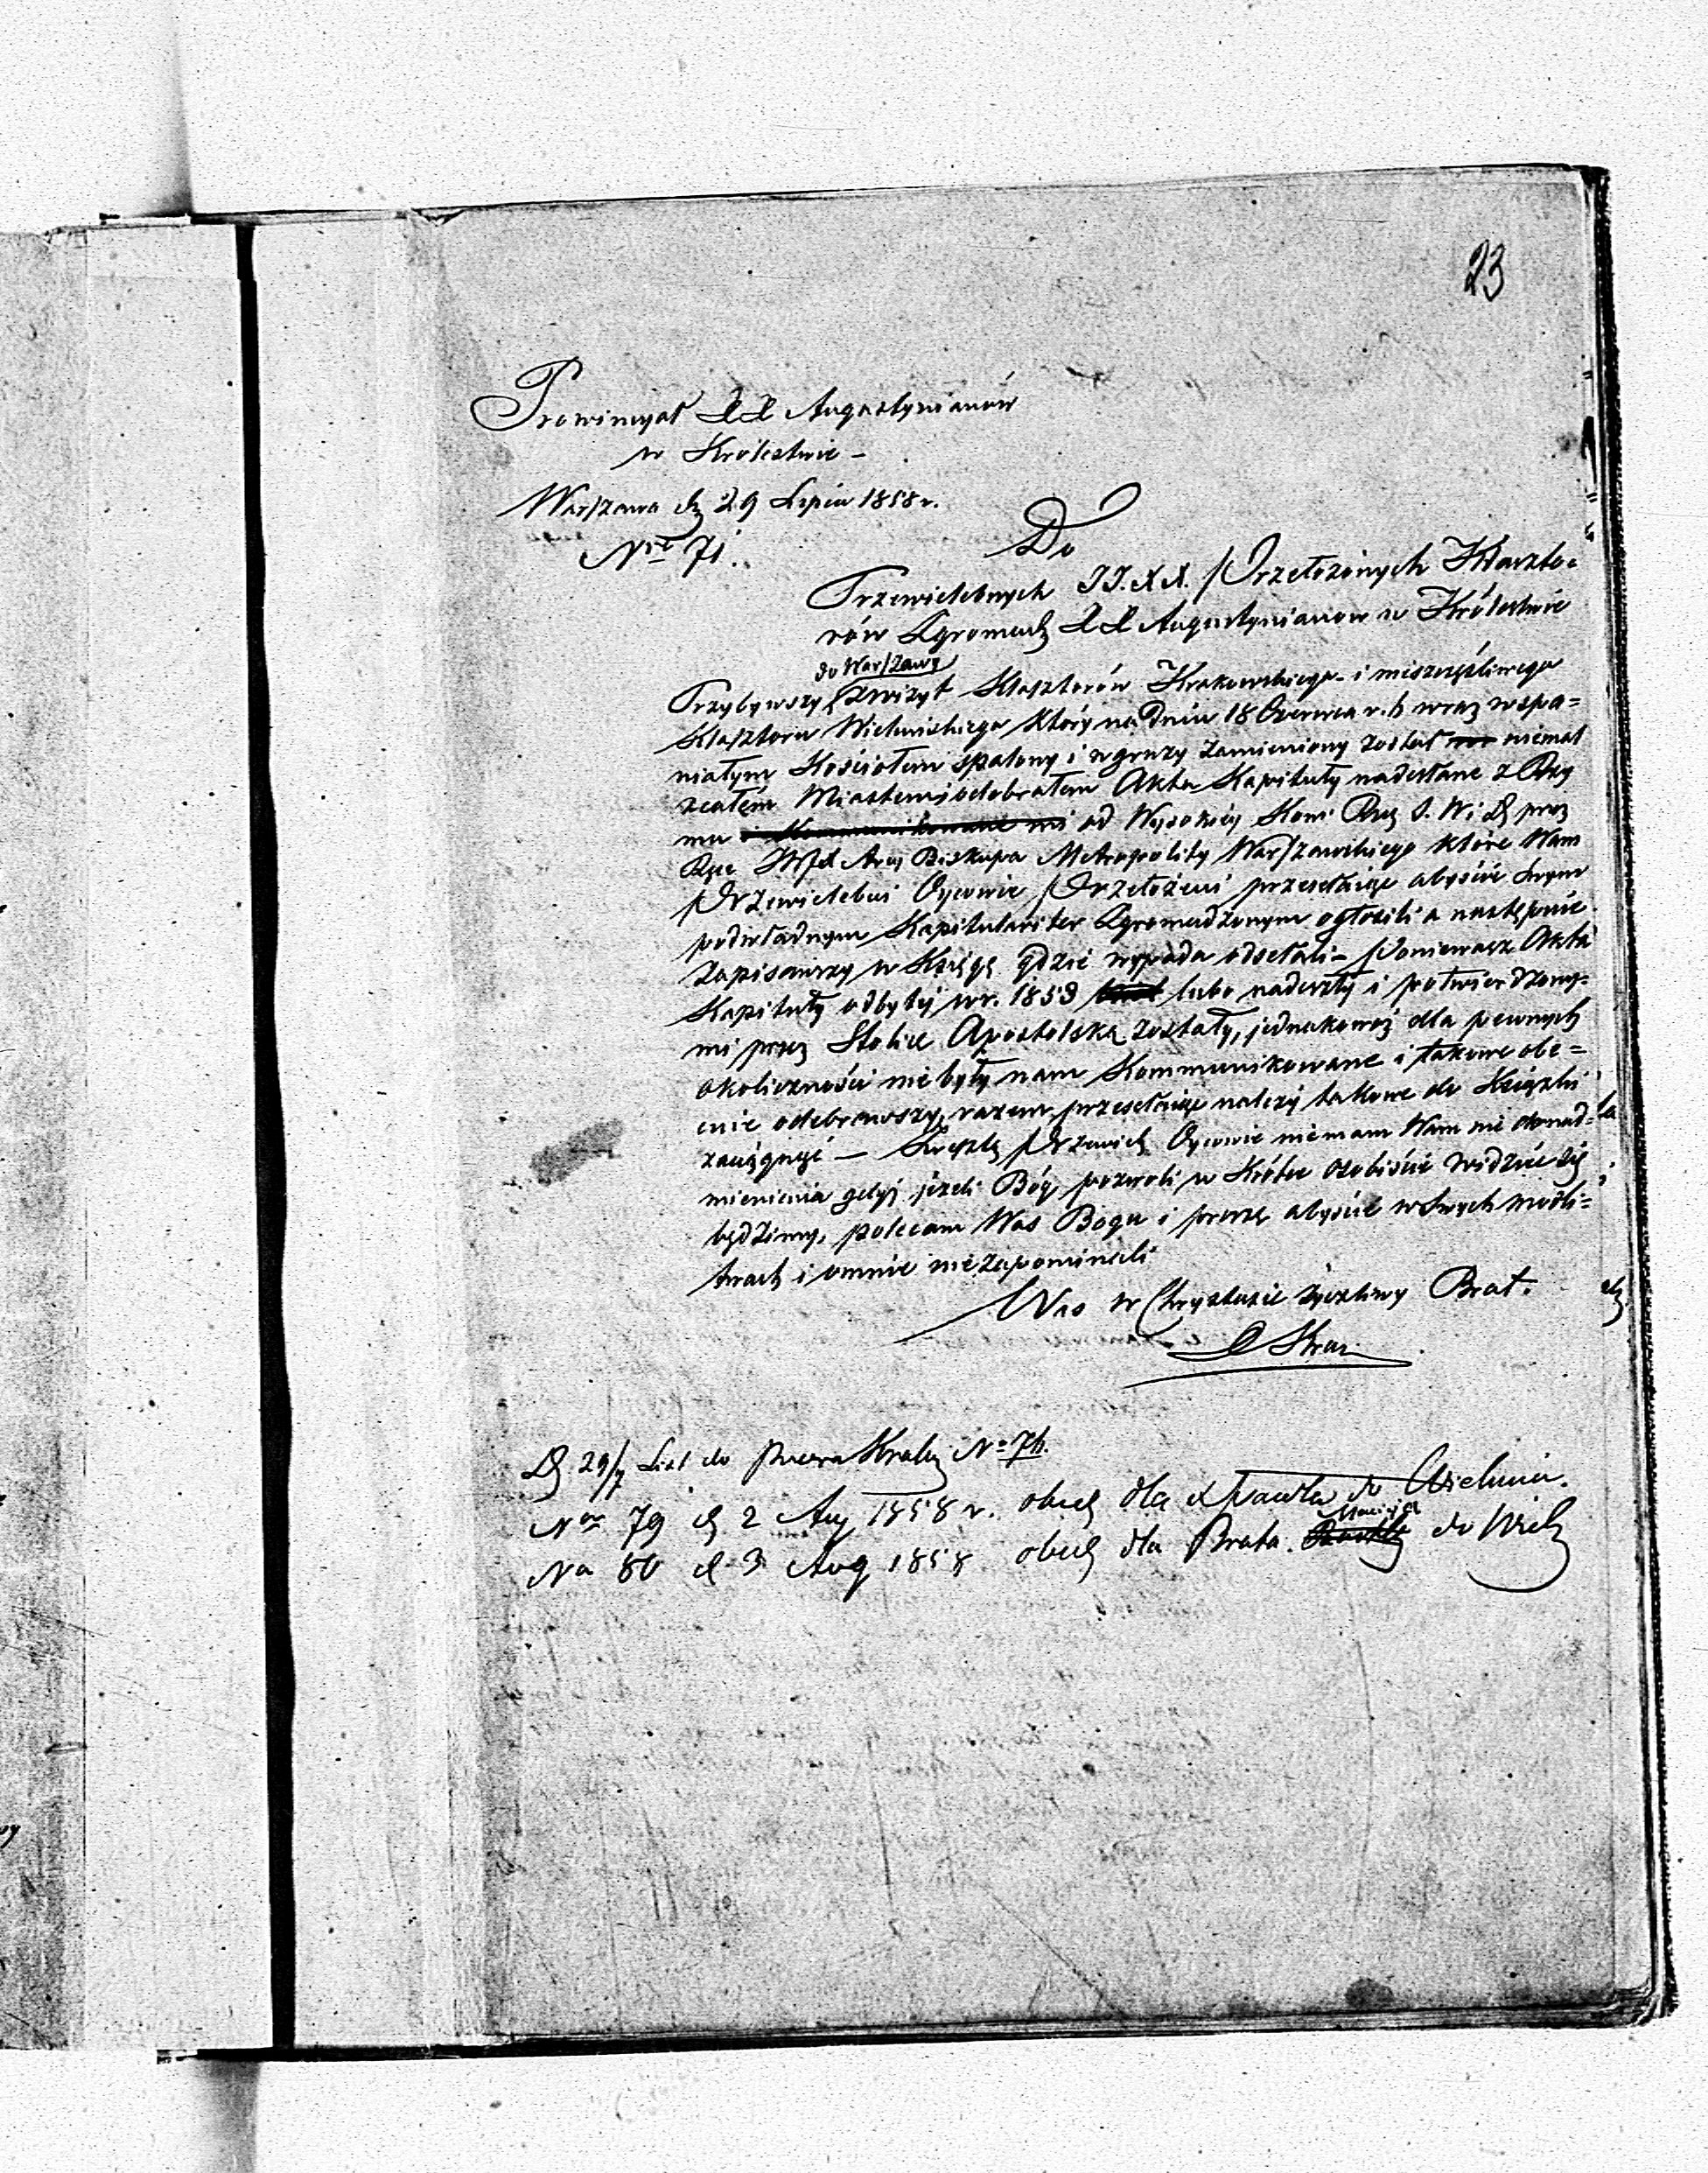 23
Prowincyał XX Augustynianów
w Królestwie –
Warszawa d. 29 Lipca 1858 r.
Nr 71.
Do
Przewielebnych JJ. XX. Przełożonych Klaszto=
rów Zgromadz XX Augustynianow w Królestwie
do Warszawy
Przybywszy z wizyt Klasztorów Krakowskiego i nieszczęśliwego
Klasztoru Wieluńskiego który na Dniu 18 Czerwca r. b wraz wspa=
niałym Kościołem spalony i w gruzy zamieniony został niemal
z całém Miastem odebrałem Akta Kapituły nadesłane z Rzy
mu od Wysokiéj Komi Rzą S. W i D przez
Ręce Arcy Biskupa Metropolity Warszawskiego które Wam
Przewielebni Oycowie Przełożeni przesełając abyście swym
podwładnym Kapitulariter Zgromadzonym ogłosili a następnie
zapisawszy w Księgę gdzie wypada odsełali – Ponieważ Akta
Kapituły odbytéj w r. 1853 lubo nadeszły i potwierdzony=
mi przez Stolicę Apostolską zostały, jednakowoż dla pewnych
okoliczności nie były nam Kommunikowane i takowe obe=
cnie odebrawszy, razem przesełając należy takowe do Książki
zaciągnąć — Zresztą Przewiel Oycowie niemam Wam nic donad=
mienienia gdyż jeżeli Bóg pozwoli w Krótce osobiście widzieć się
będziemy, polecam Was Bogu i proszę abyście w swych modli=
twach i o mnie nie zapominali
Was w Chrystusie życzliwy Brat.
D 29/7 List do No 76.
Nro 79 d 2 Aug 1858 r. obed dla X Pawła do Wielunia.
Macieja
Na 80 d 3 Aug 1858 obed dla Brata do Wiel